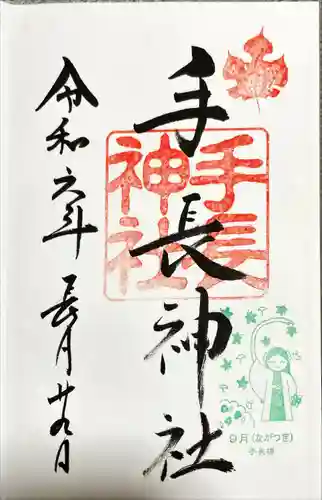 手長神社
手長
神社
令和六年 長月 廿九日
9月(ながつき)
手長様